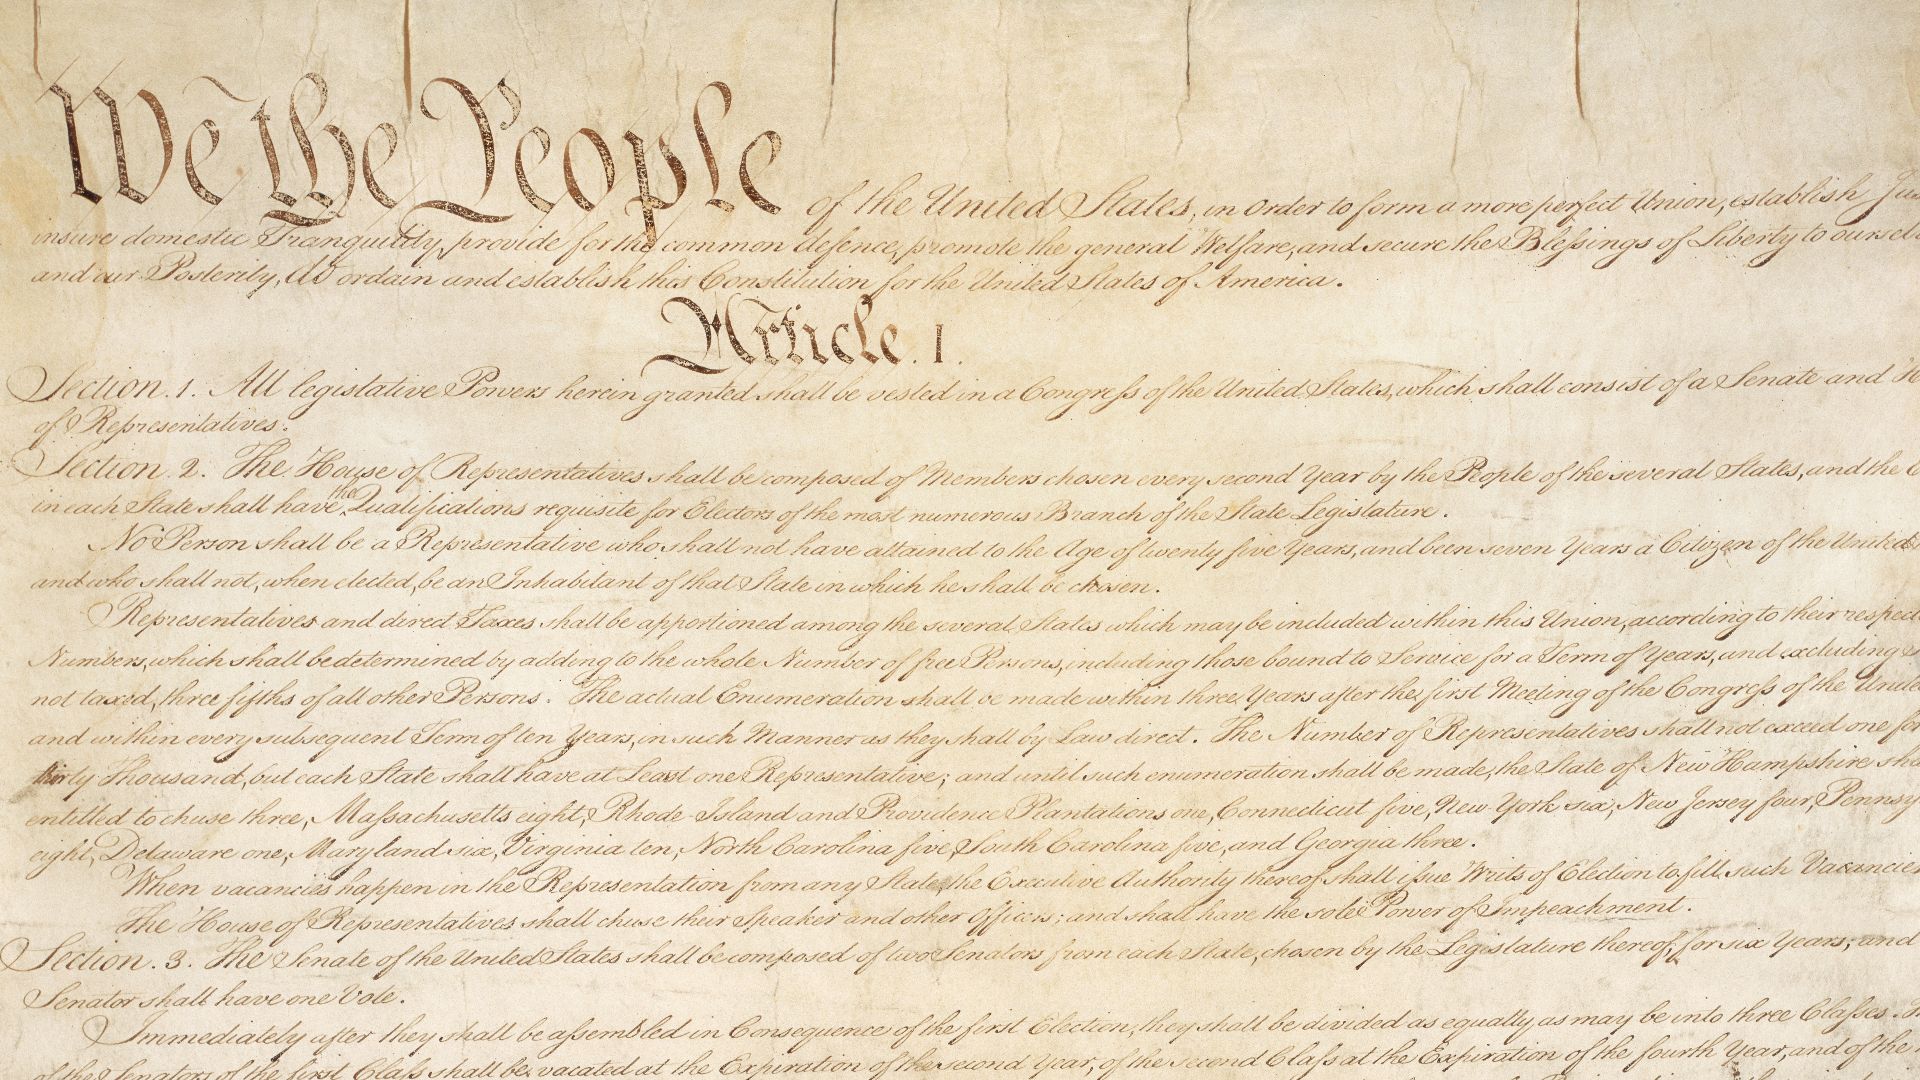 We the People of the United States, in Order to form a more perfect Union, establish
insure domestic Tranquility, provide for the common defence, promote the general Welfare, and secure the Blessings of Liberty to
and our Posterity, do ordain and establish this Constitution for the United States of America.
Article. I.
Section. 1. All legislative Powers herein granted shall be vested in a Congress of the United States, which shall consist of a Senate and
of Representatives.
Section. 2. The House of Representatives shall be composed of Members chosen every second Year by the People of the several States, and the
in each State shall have the Qualifications requisite for Electors of the most numerous Branch of the State Legislature.
No Person shall be a Representative who shall not have attained to the Age of twenty five Years, and been seven Years a Citizen of the United
and who shall not, when elected, be an Inhabitant of that State in which he shall be chosen.
Representatives and direct Taxes shall be apportioned among the several States which may be included within this Union, according to their
Numbers, which shall be determined by adding to the whole Number of free Persons, including those bound to Service for a Term of Years, and excluding
not taxed, three fifths of all other Persons. The actual Enumeration shall be made within three Years after the first Meeting of the Congress of the
and within every subsequent Term of ten Years, in such Manner as they shall by Law direct. The Number of Representatives shall not exceed one for
thirty Thousand, but each State shall have at Least one Representative; and until such enumeration shall be made, the State of New Hampshire
entitled to chuse three, Massachusetts eight, Rhode-Island and Providence Plantations one, Connecticut five, New-York six, New Jersey four,
eight, Delaware one, Maryland six, Virginia ten, North Carolina five, South Carolina five, and Georgia three.
When vacancies happen in the Representation from any State, the Executive Authority thereof shall issue Writs of Election to fill such Vacancies
The House of Representatives shall chuse their Speaker and other Officers; and shall have the sole Power of Impeachment.
Section. 3. The Senate of the United States shall be composed of two Senators from each State, chosen by the Legislature thereof, for six Years; and
Senator shall have one Vote.
Immediately after they shall be assembled in Consequence of the first Election, they shall be divided as equally as may be into three Classes.
of the Senators of the first Class shall be vacated at the Expiration of the second Year, of the second Class at the Expiration of the fourth Year, and of the